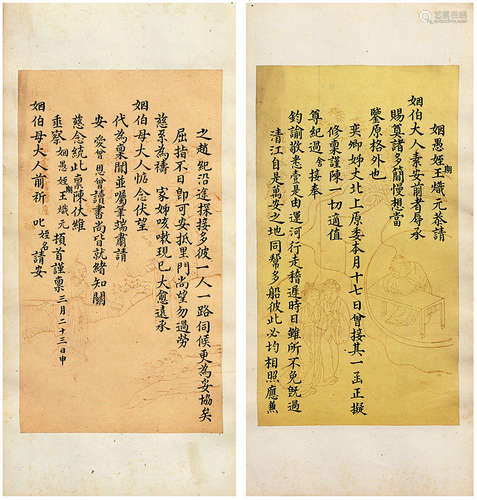 姻愚姪期王熾元恭請
姻伯大人安前者辱承
賜奠諸多簡慢想當
鑒原格外也
奕卿姊丈北上原委本月十七日曾接其一函正擬
修稟謹陳一切適值
尊紀過舍接奉
鈞諭敬悉壹是由運河行走稽遲時日雖所不免既過
清江自是萬安之地同幫多船彼此必均相照應
之趙紀沿途探接多彼一人一路伺候更為妥協矣
屈指不日即可安抵里門尚望勿過勞
慈至為禱 家姊咳嗽現已大愈遠承
姻伯母大人惦念伏望
代為稟聞並囑筆端肅請
安 愛曾恩曾讀書尚皆就緒知關
慈念統此稟陳伏維
垂察 姻愚姪期王熾元頓首謹稟 三月二十三日申
姻伯母大人前祈 叱姓名請安